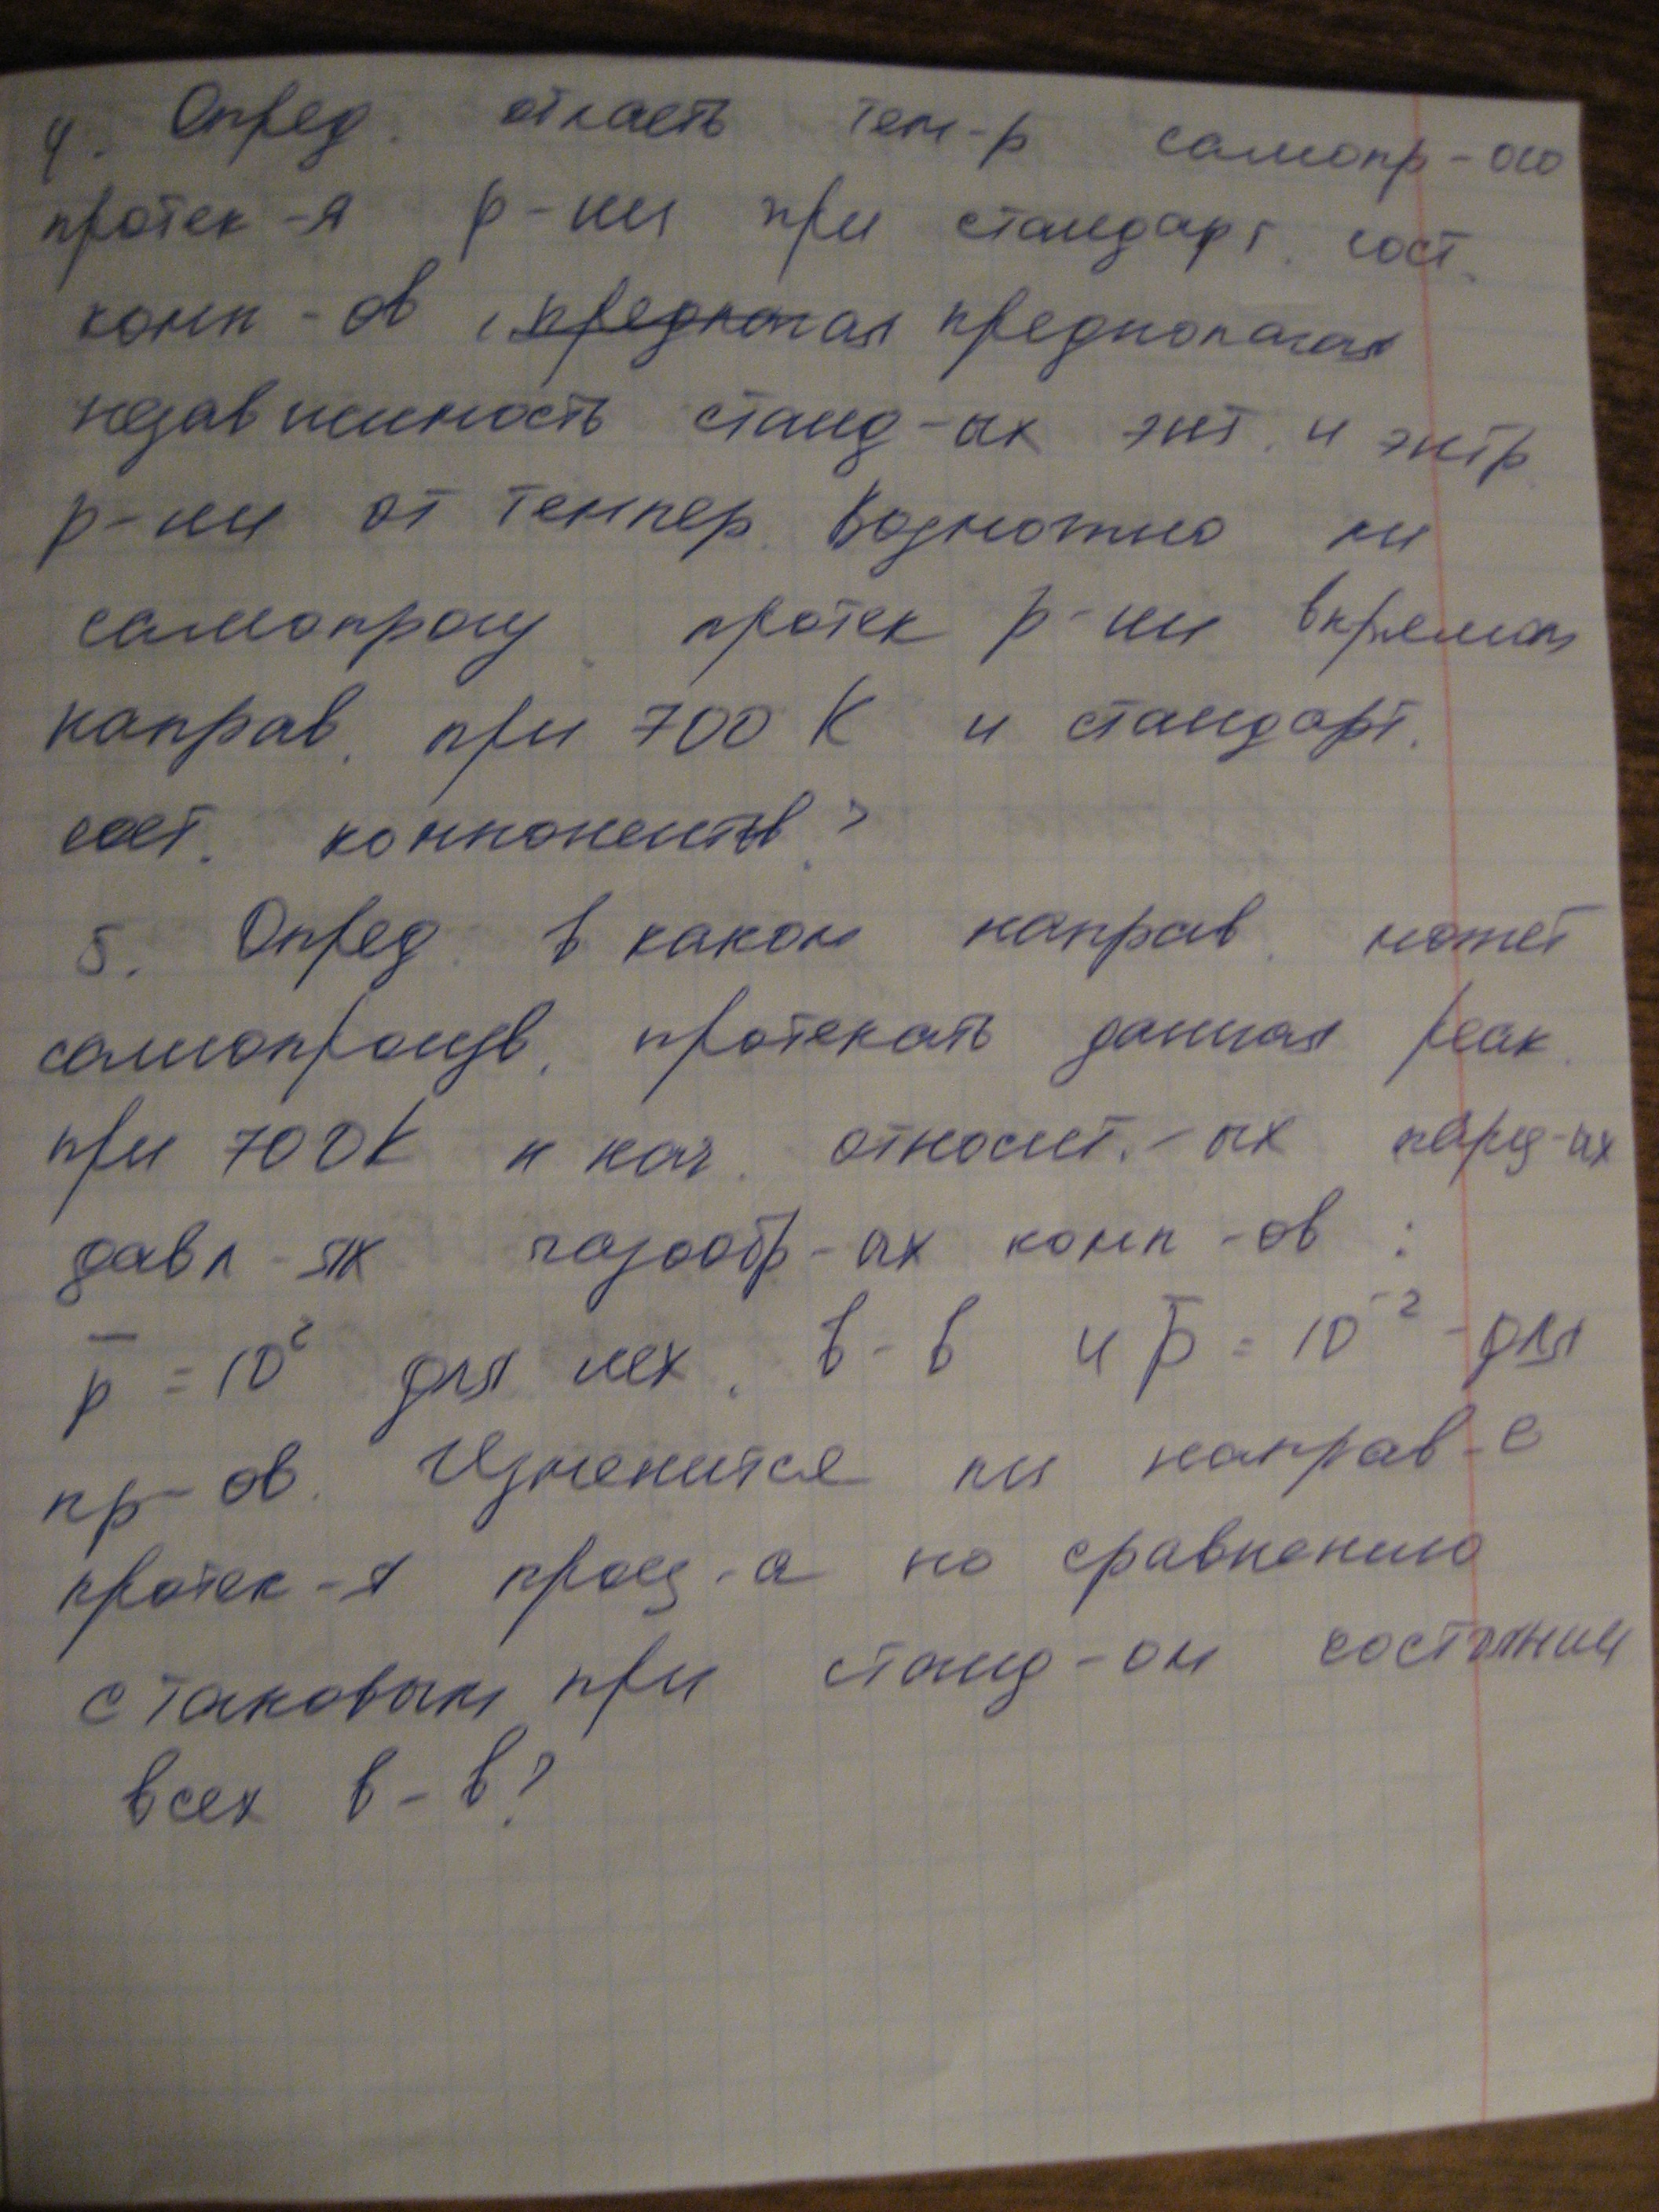 4. Опред. отласть тем-р самопр-ого
протек-я р-ции при стандарт. сост.
комп-ов, предпогая предполагая
независимость станд-ых энт. и энтр.
р-ции от темпер. Возможно ли
самопроиз. протек р-ции впрямом
направ. при 700 К и стандарт.
сост. компонентов?
5. Опред. в каком направ. может
самопроизв. протекать данная реак.
при 700К и нач. относит.-ых парц-ых
давл-ях газообр-ых комп-ов:
p̅ = 10² для исх. в-в и p̅ = 10⁻² - для
пр-ов. Изменится ли направ-е
протек-я проц-а по сравнению
с таковым при станд-ом состоянии
всех в-в?